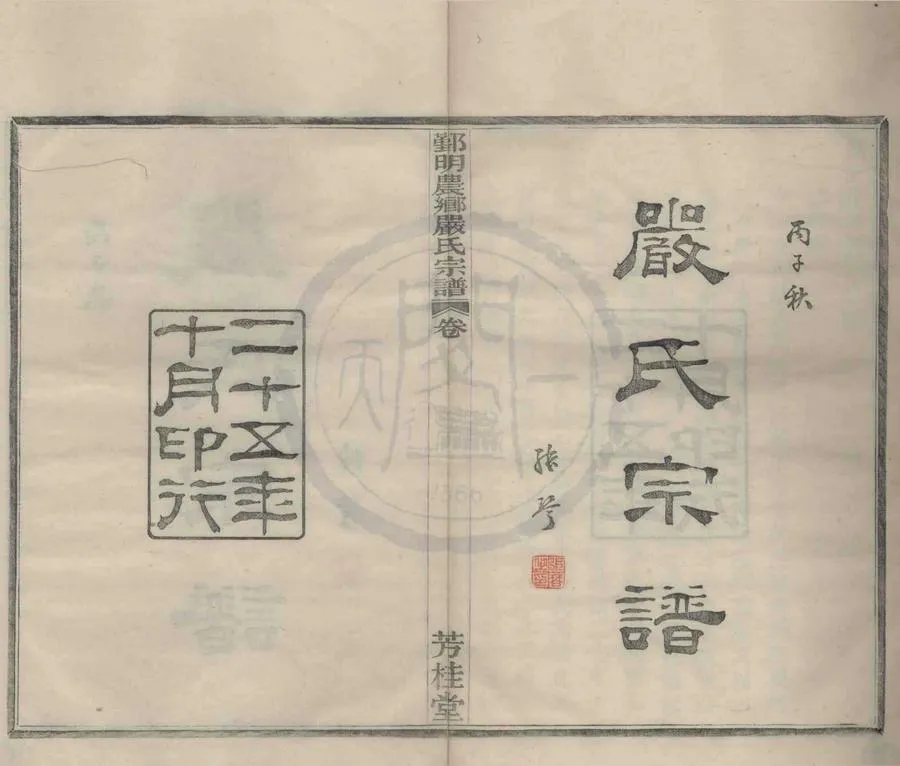 丙子秋
嚴氏宗譜
張琴
鄞明農鄉嚴氏宗譜 卷
芳桂堂
二十五年
十月印行
天一閣
1566